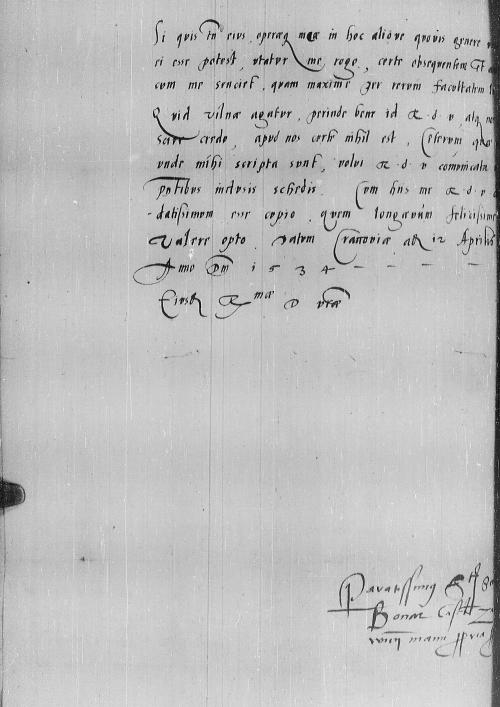 Si quis tn eius, operaq mea in hoc aliove quovis genere
ei esse potest, utatur me rogo, certe obsequentem
cum me senciet, quam maxime per rerum facultatem
Quid vilnae agatur, perinde bene id R. d. v, atq
scire credo, apud nos certe nihil est, Ceterum quae
unde mihi scripta sunt, volui R. d. v
pntibus inclusis schedis. Cum his me R. d. v
-datissimum esse cupio, quem longaevum felicissime
valere opto. Datum Cracoviae die 12 Aprilis
Anno Dni 1 5 3 4 - - - -
Eiusd R mae D vrae
Paratissimus
Bonar Cast
manu ppria